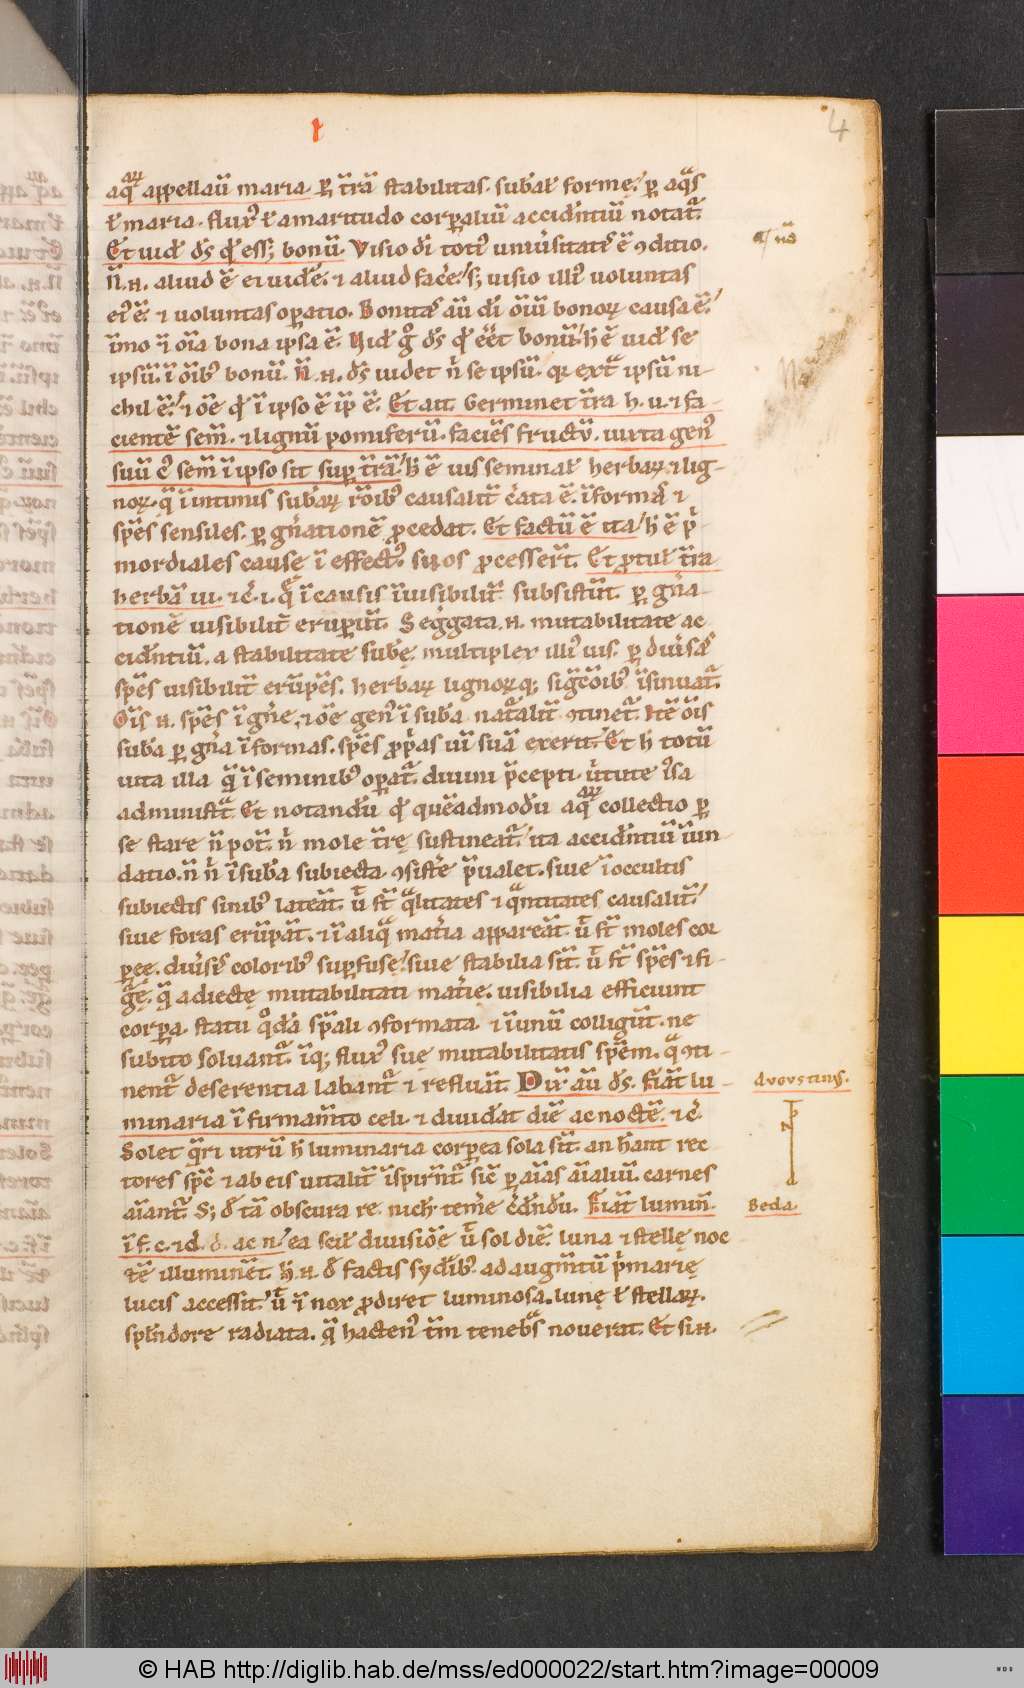 I
4
aqͣꝝ appellauı̄ maria. ꝑ t̄rā stabilitas. subal' formę. ꝑ aqͣs
ł maria. flux᷒ ł amaritudo corꝑaliū accid̄ntiū notat᷑.
Et uid' d̄s qd' ess; bonū. Visio d̄i toti᷒ uniu̾sitatis ē ꝯditio.
N̄.n. aliud ē ei uid̾e. ⁊ aliud fac̾e. s; uisio illi᷒ uoluntas
ei᷒ ē. ⁊ uoluntas oꝑatio. Bonitas aū d̄i oı̄ū bonoꝝ causa ē.
ı̄mo ⁊ oı̄a bona ipsa ē. Vid' g̊ d̄s qd' ēēt bonū. h̄ ē uid' se
ipsū. ı̄ oı̄b᷒ bonū. N̄.n. d̄s uidet n̾ se ipsū. qr extͣ ipsū ni-
chil ē. ⁊ oē qd' ı̄ ipso ē ip̄ ē. Et ait. Germinet t̄ra h. u. ⁊ fa-
cientē sem̄. ⁊ lignū pomiferū. faciēs fructū. iuxta gen᷒
suū c᷒ sem̄ ı̄ ipso sit suꝑ t̄rā. h̄ ē uis seminal' herbaꝝ ⁊ lig-
noꝝ. q̄ ı̄ intimis subaꝝ rōıb᷒ causalit̄ c̾ata ē. ı̄ formas ⁊
sp̄es sensiles. ꝑ gn̾ationē ꝓcedat. Et factū ē ita. h̄ ē pͥ-
mordiales causę ı̄ effect᷒ suos ꝓcesser̄t. Et ꝓtul' t̄ra
herbā ui. ⁊ c̾. i. qͣ ı̄ causis ı̄uisibilit̾ subsistūt. ꝑ gn̾a-
tionē uisibilit̾ eruꝑūt. Seg̾gata.n. mutabilitate ac
cid̄ntiū. a stabilitate subę. multiplex illi᷒ uis. ꝑ diu̾sas
sp̄es uisibilit̾ erūp̄es. herbaꝝ lignoꝝq; sigͥc̄oıb᷒ ı̄sinuat᷑.
Oı̄s.n. sp̄es ı̄ gn̾e. ⁊ oē gen᷒ ı̄ suba nat᷑alit̾ ꝯtinet᷑. Itē oı̄s
suba ꝑ gn̾a ı̄ formas. sp̄es ꝓpͥas uı̄ suā exerit. Et h̄ totū
uita illa q̄ ı̄ seminib᷒ oꝑat᷑. diuini p̄cepti. u̾tute ip̄sa
administͣt. Et notand̄u qd' quēadmod̄u aqͣꝝ collectio ꝑ
se stare n̄ pot̄. n̾ mole t̄rę sustineat᷑. ita accid̄ntiū ı̄un
datio. n̄ n̾ ı̄ suba subiecta ꝯsist̾e p̄ualet. siue ı̄ occultis
subiectis sinib᷒ lateāt. uͭ st̄ qͣlitates ⁊ qͣntitates causalit̾.
siue foras erūpāt. ⁊ ı̄ aliqͣ mat̾ia appareāt. uͭ st̄ moles cor
ꝑeę. diu̾sis coloribᷤ suꝑfusę. siue stabilia st̄. uͭ st̄ sp̄es ⁊ fi-
g̾ę. q̄ adiectę mutabilitati mat̾ię. uisibilia efficiunt
corꝑa. statu qͦdā sp̄ali ꝯformata. ⁊ ı̄ unū colligūt. ne
subito soluant᷑. ı̄q; flux᷒ suę mutabilitatis sp̄em. qͣ ꝯti-
nent᷑ deserentia labant᷑ ⁊ refluāt. Dix̄ aū d̄s. Fiāt lu-
minaria ı̄ firmam̄to celi. ⁊ diuid̄at diē ac noctē. ⁊ c̾.
Solet qͣri utrū h̄ luminaria corꝑea sola st̄. an h̄ant rec
tores sp̄c ⁊ ab eis uitalit̾ ı̄spirn̄t᷑ sic̄ ꝑ aı̄as aı̄aliū. carnes
aı̄ant᷑. S; d' tā obscura re. nich' tem̾e c̾d̄nd̄u. Fiāt lumin̄.
ı̄ f. c. ⁊ d. d. ac n. ea scil' diuisiōe uͭ sol diē. luna ⁊ stellę noc
tē illuminēt. h̄.n. d' factis syd̾ib᷒ ad augm̄tū pͥmarię
lucis accessit. uͭ ⁊ nox ꝓdiret luminosa. lunę ł stellaꝝ.
splēndore radiata. q̄ hacten᷒ tm̄ tenebͣs nouerat. Et si.n.
Avgvstinꝰ.
Beda.
© HAB http://diglib.hab.de/mss/ed000022/start.htm?image=00009